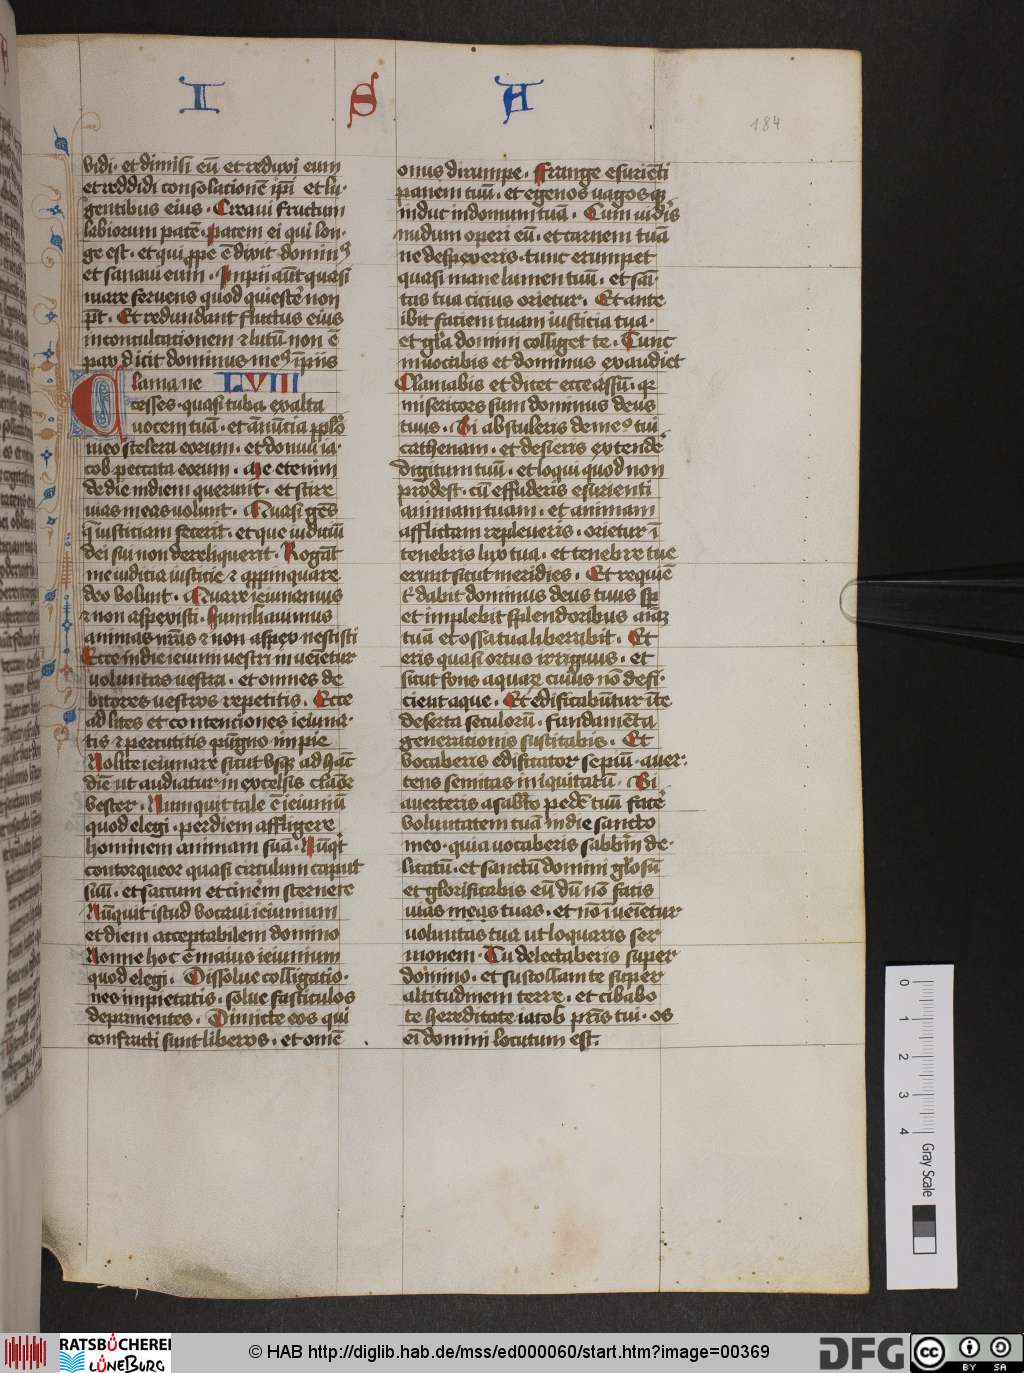 I S A
184
vidi · et dimisi eū et reduxi eum
et reddidi consolationē ipi et lu·
gentibus eius · Creavi fructum
labiorum pacē · pacem ei qui lon·
ge est · et qui ꝓpe ē dixit dominꝰ
et sanavi eum · Impii aūt quasi
mare fervens quod quiescere non
pt · Et redundant fluctus eius
in conculcationem ⁊ lutū non ē
pax dicit dominus meꝰ īpiis
Clama ne LVIII
cesses · quasi tuba exalta
vocem tuā · et ānūcia pplo
meo scelera eorum · et domui ia·
cob peccata eorum · Me etenim
de die in diem querunt · et scire
vias meas volunt · Quasi gens
q̄ iusticiam fecerit · et que iudiciū
dei sui non dereliquerit · Rogāt
me iudicia iusticie ⁊ appinquare
deo volunt · Quare ieiunamus
⁊ non aspexisti · humiliavimus
animas nr̄as ⁊ non aspex nescisti
Ecce in die ieiunii vestri invenietur
voluntas vestra · et omnes de
bitores vestros repetitis · Ecce
ad lites et contenciones ieiuna·
tis ⁊ percutitis pugno impie
Nolite ieiunare sicut vsqꝫ ad hāc
diē ut audiatur in excelsis clāor
vester · Nunquit tale ē ieiuniū
quod elegi · per diem affligere
hominem animam suā · Nūqt
contorqueor quasi circulum caput
suū · et saccum et cinerem sternere
Nūquit istud vocavi ieiunium
et diem acceptabilem domino
Nonne hoc ē maius ieiunium
quod elegi · Dissolue colligatio·
nes impietatis · solue fasticulos
deprimentes · Dimicte eos qui
confracti sunt liberos · et omē
onus dirumpe · Frange esuriēti
panem tuū · et egenos vagosqꝫ
induc in domum tuā · Cum videris
nudum operi eū · et carnem tuā
ne despexeris · tunc erumpet
quasi mane lumen tuū · et sani
tas tua cicius orietur · Et ante
ibit faciem tuam iusticia tua ·
et gl̄a domini colliget te · Tunc
invocabis et dominus exaudiet
Clamabis et dicet ecce assū · qꝛ
misericors sum dominus deus
tuus · Si abstuleris de meꝰ tui
cathenam · et desieris extende
digitum tuū · et loqui quod non
prodest · cū effuderis esurienti
animam tuam · et animam
afflictam repleveris · orietur ī
tenebris lux tua · et tenebre tue
erunt sicut meridies · Et requiē
t̄ dabit dominus deus tuus sp̄
et implebit splendoribus aīaꝫ
tuā et ossa tua liberabit · Et
eris quasi ortus irriguus · et
sicut fons aquarꝫ cuius non defi·
cient aque · Et edificabūtur ī te
deserta seculorū · fundamēta
generacionis suscitabis · Et
vocaberis edificator sepiū · aver·
tens semitas iniquitatū · Si
averteris a sabbo pedē tuū facē
voluntatem tuā in die sancto
meo · quia vocaberis sabbm̄ de·
licatū · et sanctū domini gl̄osū
et glorificabis eū dū nō facis
vias meas tuas · et nō īveietur
voluntas tua ut loquaris ser
monem · Tu delectaberis super
domino · et sustollam te super
altitudinem terre · et cibabo
te hereditate iacob pr̄is tui · os
eī domini locutum est.
0 1 2 3 4 Gray Scale
RATSBÜCHEREI LÜNEBURG
© HAB http://diglib.hab.de/mss/ed000060/start.htm?image=00369
DFG
cc BY SA